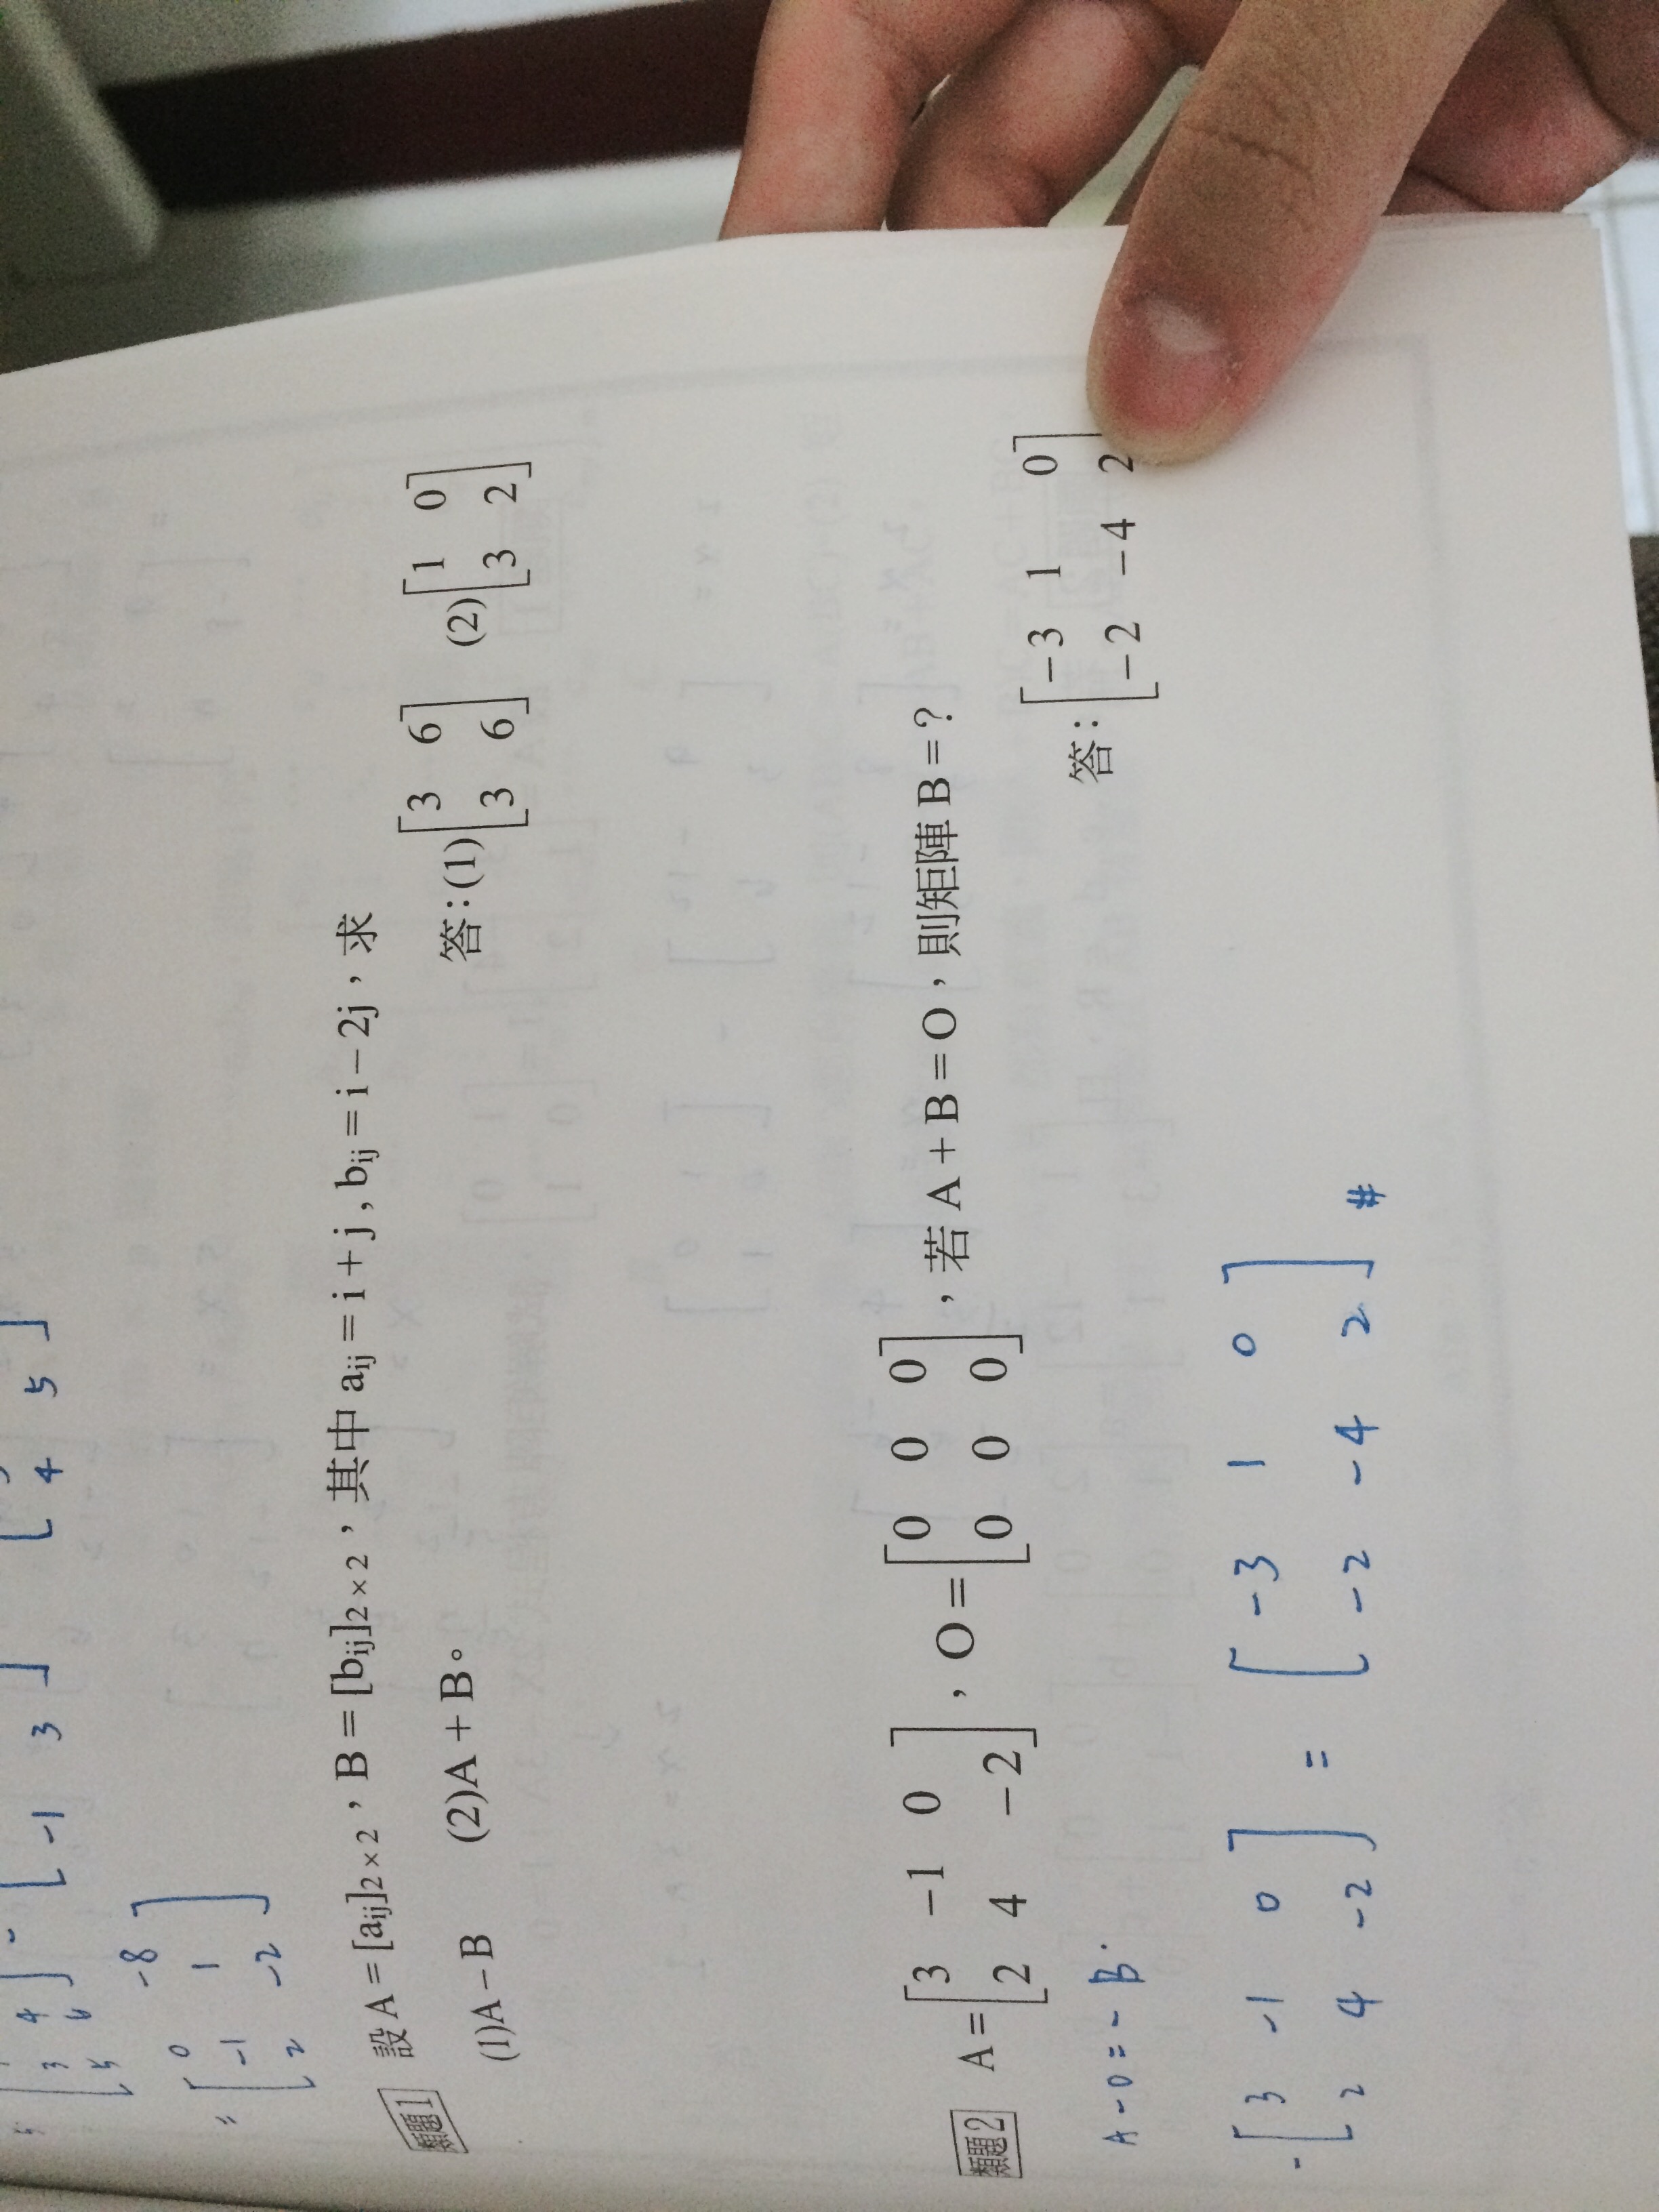 [3 4
5 6] - [-1
3] [4 5]
-8
= [0
-1 1
2 -2]
類題1 設 A = [aij]2×2,B = [bij]2×2,其中 aij = i + j , bij = i − 2j,求
(1)A − B (2)A + B。
答:(1)[3 6
3 6] (2)[1 0
3 2]
類題2 A = [3 −1 0
2 4 −2],O = [0 0 0
0 0 0],若 A + B = O,則矩陣 B = ?
A - 0 = - B.
答:[−3 1 0
−2 −4 2
- [3 -1 0
2 4 -2] = [-3 1 0
-2 -4 2] #